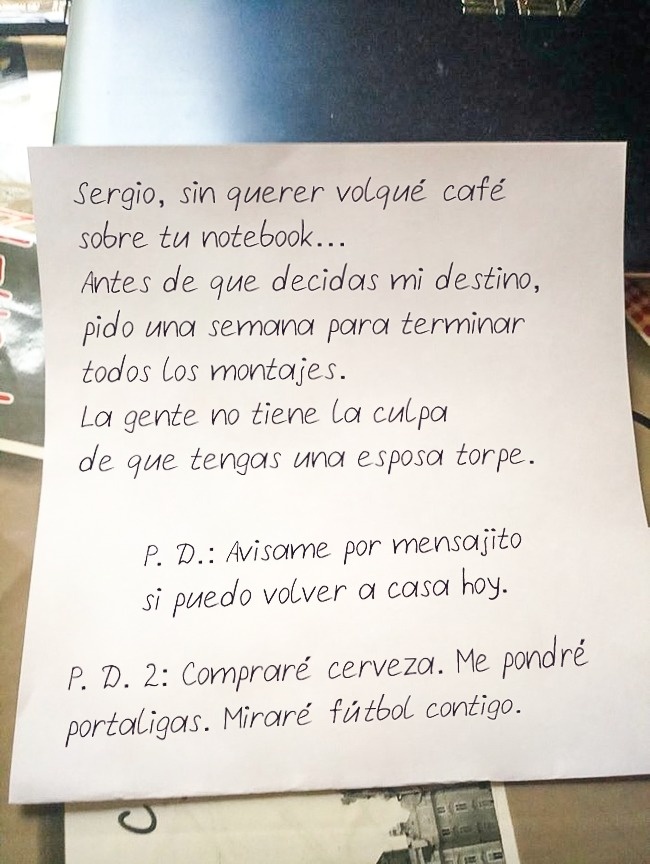 Sergio, sin querer volqué café
sobre tu notebook...
Antes de que decidas mi destino,
pido una semana para terminar
todos los montajes.
La gente no tiene la culpa
de que tengas una esposa torpe.
P. D.: Avisame por mensajito
si puedo volver a casa hoy.
P. D. 2: Compraré cerveza. Me pondré
portaligas. Miraré fútbol contigo.